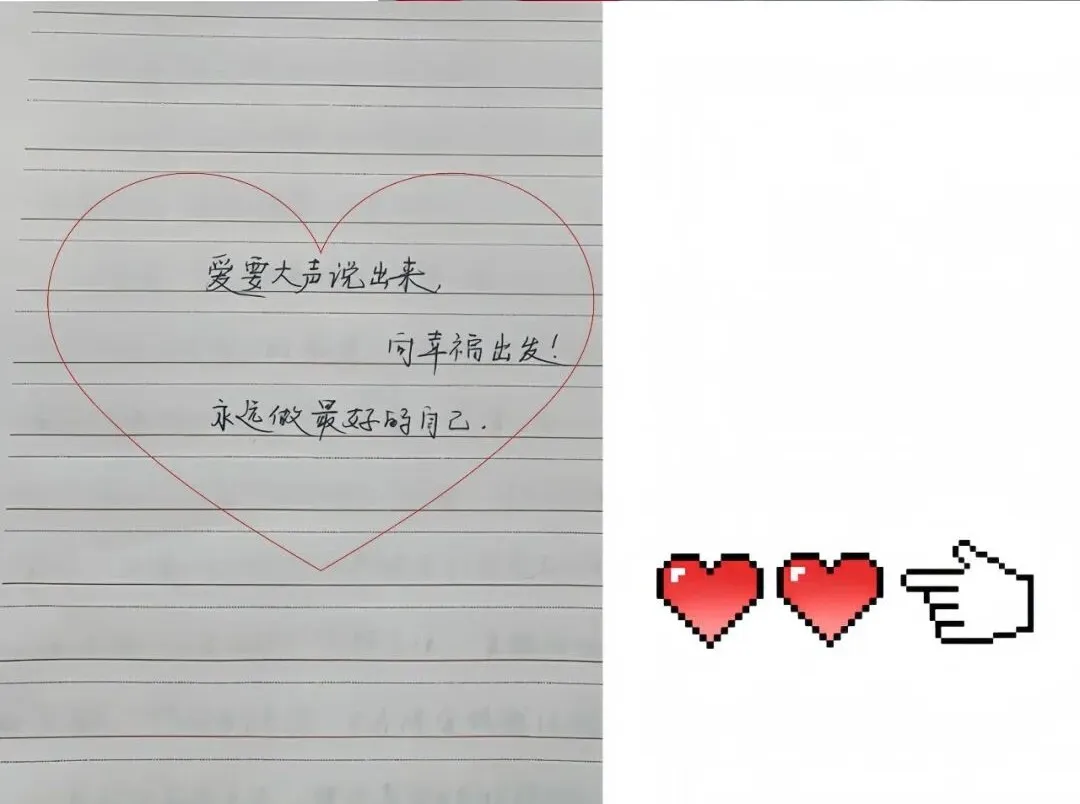 爱要大声说出来,
向幸福出发!
永远做最好的自己.